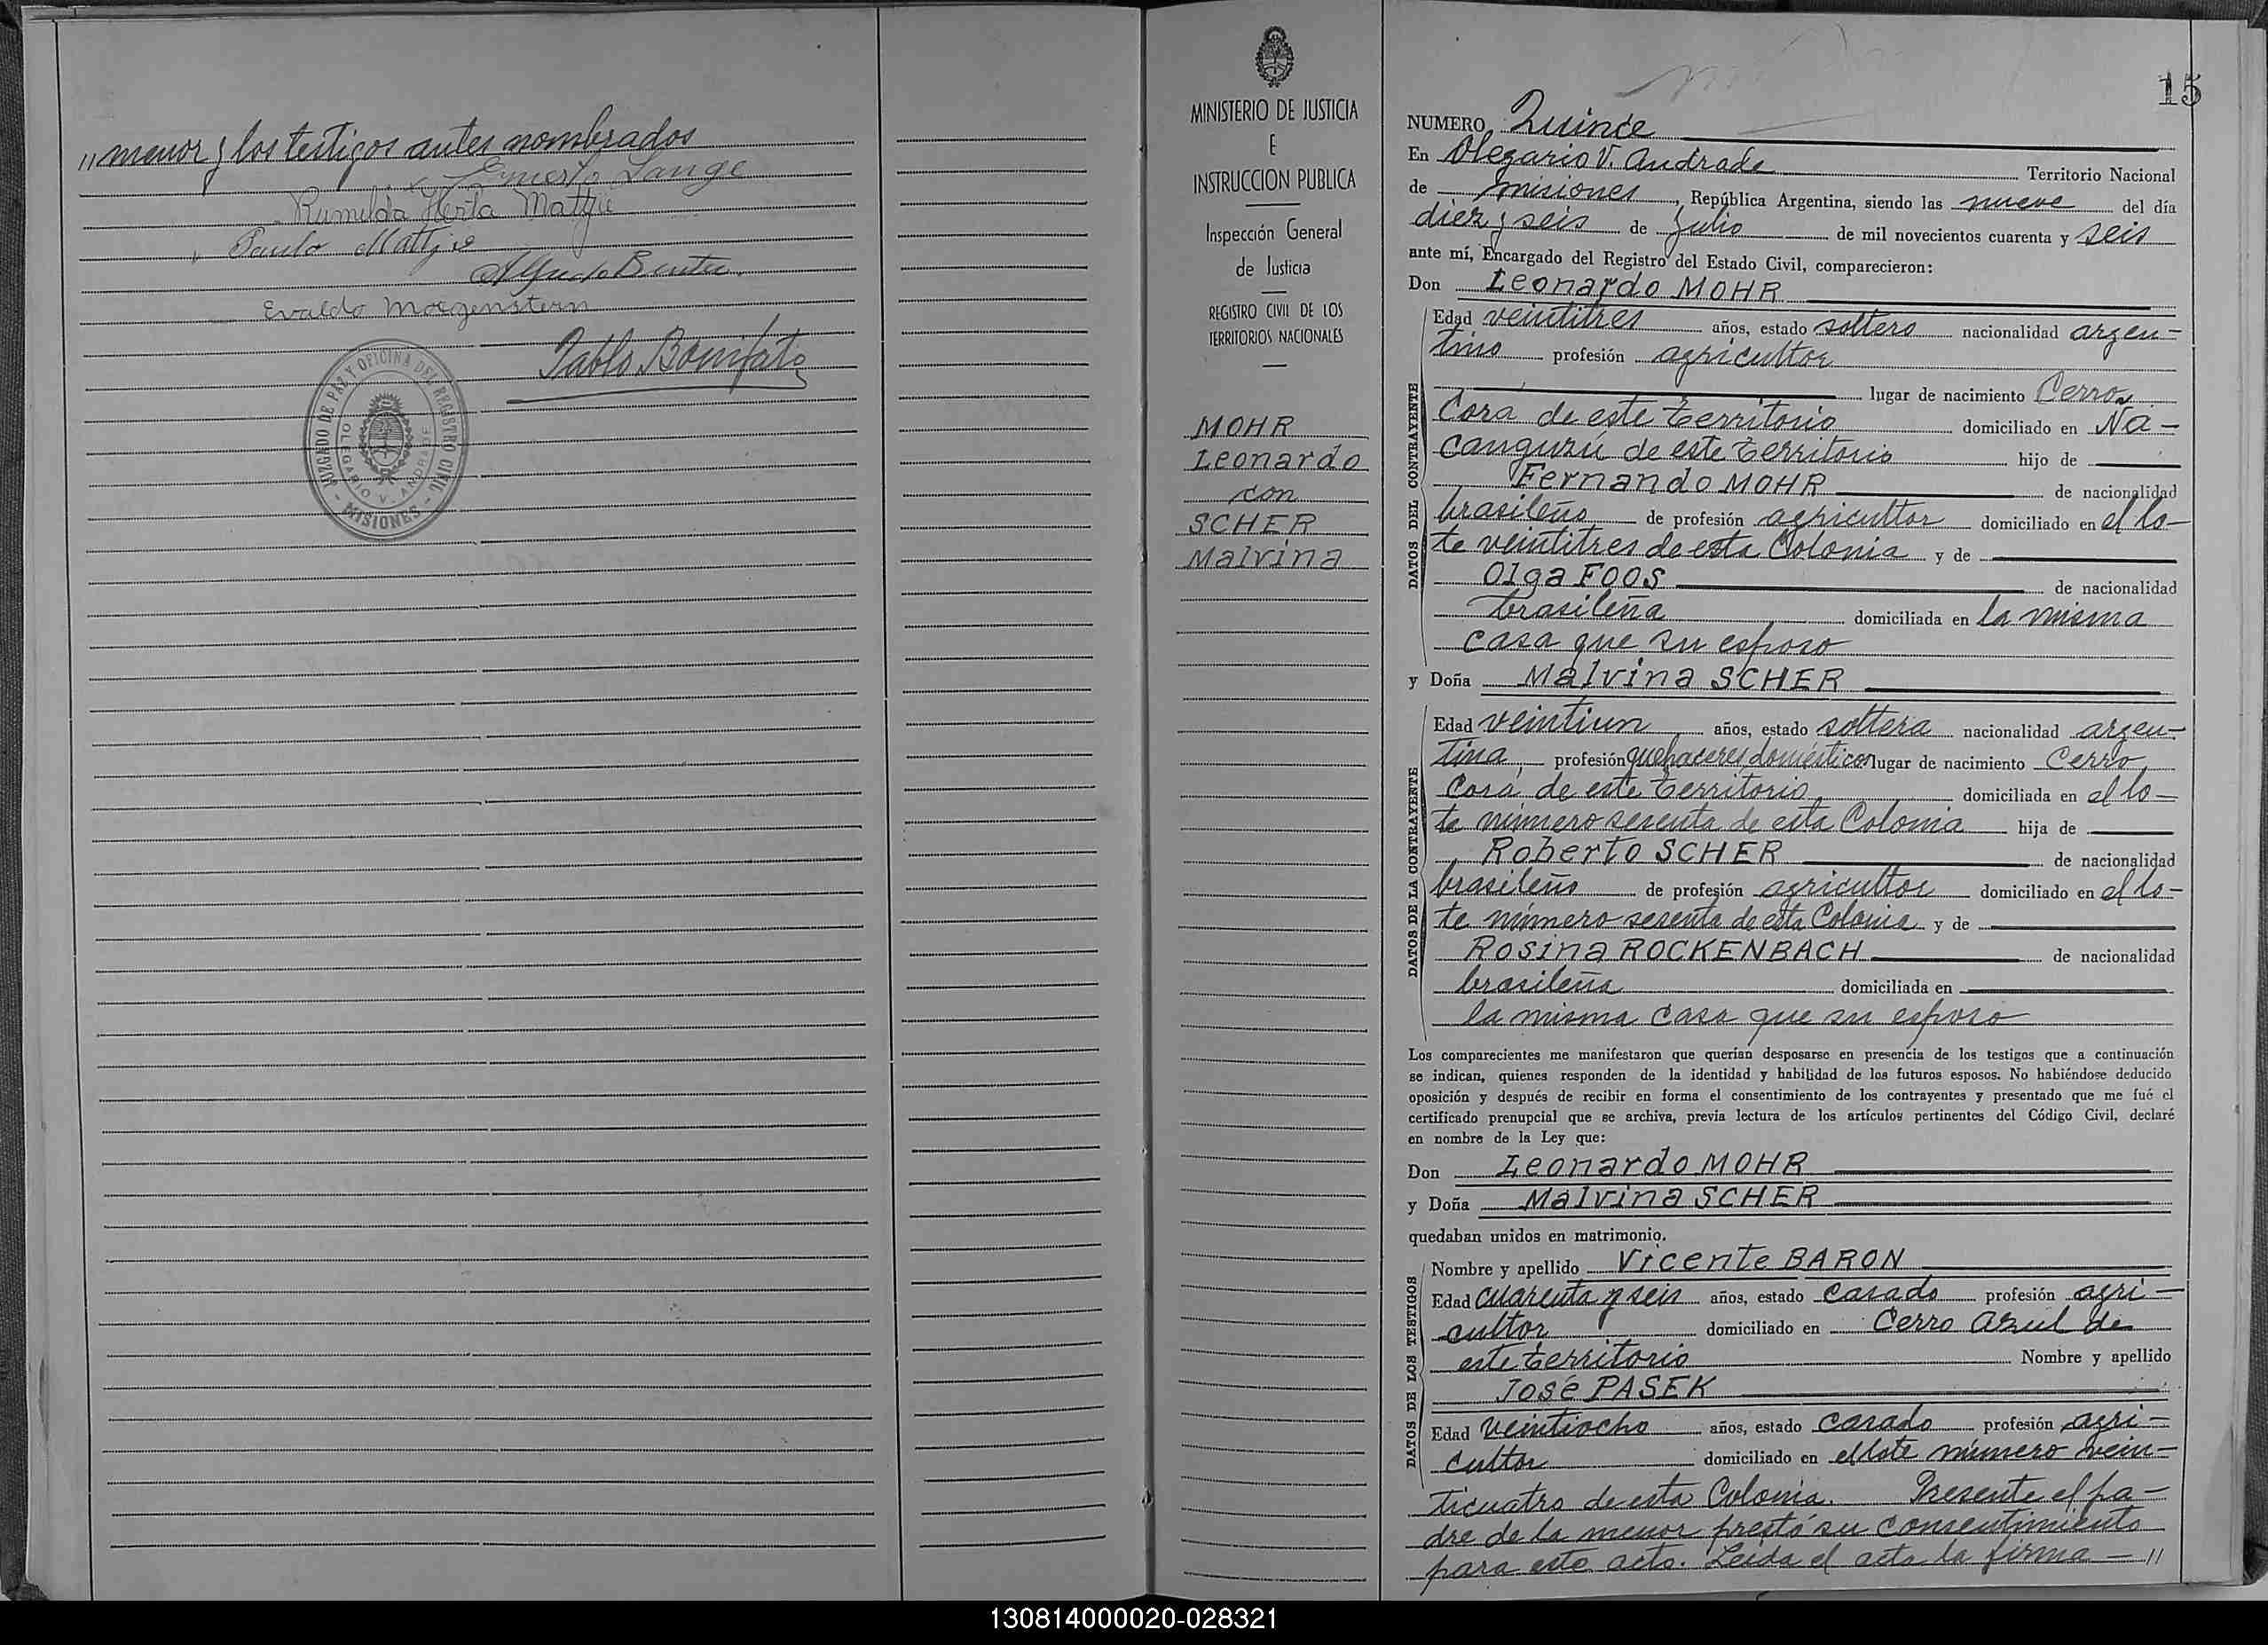 " menor y los testigos antes nombrados
Ernesto Lange
Rumilda Herta Mattje
Paulo Mattje
Alfredo
Evaldo Morgenstern
Pablo Bonifato
JUZGADO DE PAZ Y OFICINA DEL REGISTRO CIVIL
OLEGARIO V. ANDRADE
- MISIONES -
MINISTERIO DE JUSTICIA
E
INSTRUCCION PUBLICA
Inspección General
de Justicia
REGISTRO CIVIL DE LOS
TERRITORIOS NACIONALES
MOHR
Leonardo
con
SCHER
Malvina
15
NUMERO Quince
En Olegario V. Andrade Territorio Nacional
de Misiones, República Argentina, siendo las nueve del día
diez y seis de Julio de mil novecientos cuarenta y seis
ante mí, Encargado del Registro del Estado Civil, comparecieron:
Don Leonardo MOHR
DATOS DEL CONTRAYENTE
Edad veintitres años, estado soltero nacionalidad argen-
tino profesión agricultor
lugar de nacimiento Cerro
Corá de este territorio domiciliado en Ña-
canguzú de este territorio hijo de
Fernando MOHR de nacionalidad
brasileño de profesión agricultor domiciliado en el lo-
te veintitres de esta Colonia y de
Olga FOOS de nacionalidad
brasileña domiciliada en la misma
casa que su esposo
y Doña Malvina SCHER
DATOS DE LA CONTRAYENTE
Edad veintiun años, estado soltera nacionalidad argen-
tina, profesión quehaceres domésticos lugar de nacimiento Cerro
Corá de este territorio domiciliada en el lo-
te número sesenta de esta Colonia hija de
Roberto SCHER de nacionalidad
brasileño de profesión agricultor domiciliado en el lo-
te número sesenta de esta Colonia y de
Rosina ROCKENBACH de nacionalidad
brasileña domiciliada en
la misma casa que su esposo
Los comparecientes me manifestaron que querían desposarse en presencia de los testigos que a continuación
se indican, quienes responden de la identidad y habilidad de los futuros esposos. No habiéndose deducido
oposición y después de recibir en forma el consentimiento de los contrayentes y presentado que me fué el
certificado prenupcial que se archiva, previa lectura de los artículos pertinentes del Código Civil, declaré
en nombre de la Ley que:
Don Leonardo MOHR
y Doña Malvina SCHER
quedaban unidos en matrimonio.
DATOS DE LOS TESTIGOS
Nombre y apellido Vicente BARON
Edad cuarenta y seis años, estado casado profesión agri-
cultor domiciliado en Cerro Azul de
este territorio Nombre y apellido
José PASEK
Edad veintiocho años, estado casado profesión agri-
cultor domiciliado en el lote número vein-
ticuatro de esta Colonia. Presente el pa-
dre de la menor prestó su consentimiento
para este acto. Leída el acta la firma - "
130814000020-028321